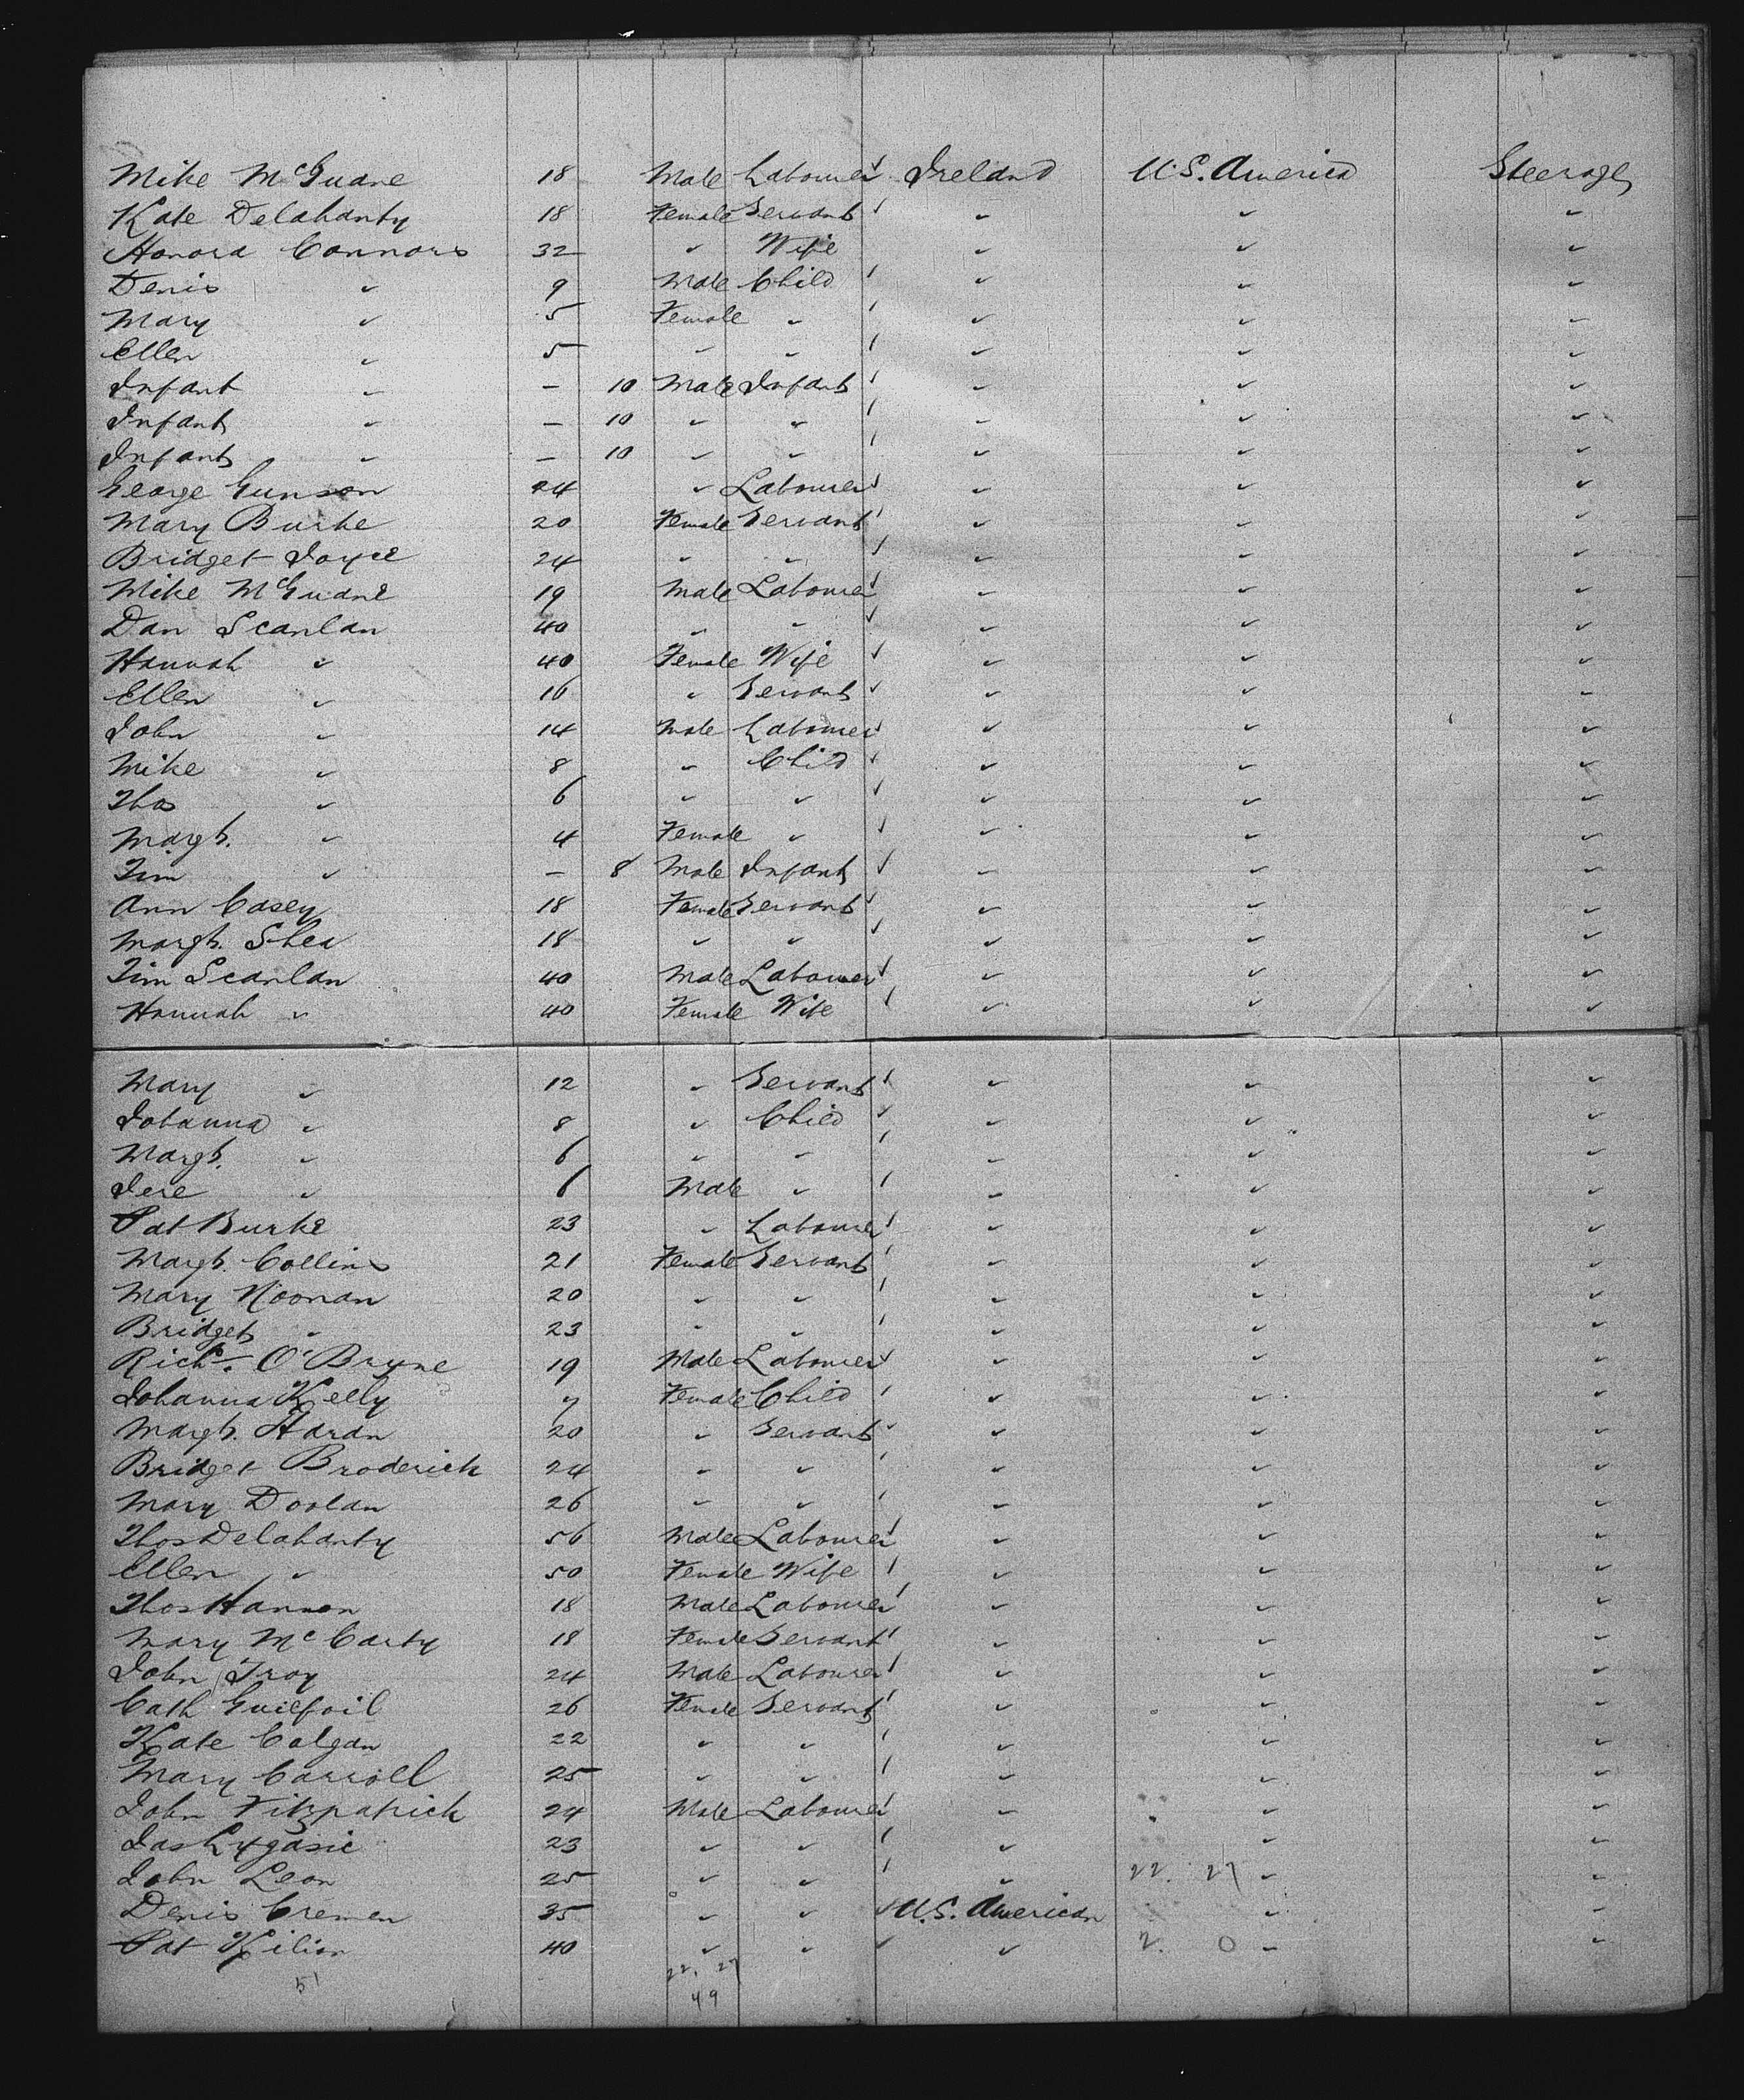 Mike McGuane 18 Male Labourer ✓ Ireland U.S. America Steerage
Kate Delahanty 18 Female Servant ✓ ✓ ✓ ✓
Honora Connors 32 ✓ Wife ✓ ✓ ✓
Denis ✓ 9 Male Child ✓ ✓ ✓ ✓
Mary ✓ 5 Female ✓ ✓ ✓ ✓ ✓
Ellen ✓ 5 ✓ ✓ ✓ ✓ ✓ ✓
Infant ✓ – 10 Male Infant ✓ ✓ ✓ ✓
Infant ✓ – 10 ✓ ✓ ✓ ✓ ✓ ✓
Infant ✓ – 10 ✓ ✓ ✓ ✓ ✓ ✓
George Gunson 24 ✓ Labourer ✓ ✓ ✓ ✓
Mary Burke 20 Female Servant ✓ ✓ ✓ ✓
Bridget Joyce 24 ✓ ✓ ✓ ✓ ✓ ✓
Mike McGuane 19 Male Labourer ✓ ✓ ✓ ✓
Dan Scanlan 40 ✓ ✓ ✓ ✓ ✓ ✓
Hannah ✓ 40 Female Wife ✓ ✓ ✓ ✓
Ellen ✓ 16 ✓ Servant ✓ ✓ ✓ ✓
John ✓ 14 Male Labourer ✓ ✓ ✓ ✓
Mike ✓ 8 ✓ Child ✓ ✓ ✓ ✓
Thos ✓ 6 ✓ ✓ ✓ ✓ ✓ ✓
Margt. ✓ 4 Female ✓ ✓ ✓ ✓ ✓
Tim ✓ – 8 Male Infant ✓ ✓ ✓ ✓
Ann Casey 18 Female Servant ✓ ✓ ✓ ✓
Margt. Shea 18 ✓ ✓ ✓ ✓ ✓ ✓
Tim Scanlan 40 Male Labourer ✓ ✓ ✓ ✓
Hannah ✓ 40 Female Wife ✓ ✓ ✓ ✓
Mary ✓ 12 ✓ Servant ✓ ✓ ✓ ✓
Johanna ✓ 8 ✓ Child ✓ ✓ ✓ ✓
Margt. ✓ 6 ✓ ✓ ✓ ✓ ✓ ✓
Jere ✓ 6 Male ✓ ✓ ✓ ✓ ✓
Pat Burke 23 ✓ Labourer ✓ ✓ ✓ ✓
Margt. Collins 21 Female Servant ✓ ✓ ✓ ✓
Mary Noonan 20 ✓ ✓ ✓ ✓ ✓ ✓
Bridget ✓ 23 ✓ ✓ ✓ ✓ ✓ ✓
Richd. O'Bryne 19 Male Labourer ✓ ✓ ✓ ✓
Johanna Kelly 7 Female Child ✓ ✓ ✓ ✓
Margt. Haran 20 ✓ Servant ✓ ✓ ✓ ✓
Bridget Broderick 24 ✓ ✓ ✓ ✓ ✓ ✓
Mary Doolan 26 ✓ ✓ ✓ ✓ ✓ ✓
Thos Delahanty 56 Male Labourer ✓ ✓ ✓ ✓
Ellen ✓ 50 Female Wife ✓ ✓ ✓ ✓
Thos Hannon 18 Male Labourer ✓ ✓ ✓ ✓
Mary McCarty 18 Female Servant ✓ ✓ ✓ ✓
John Troy 24 Male Labourer ✓ ✓ ✓ ✓
Cath Guilfoil 26 Female Servant ✓ ✓ ✓ ✓
Kate Colgan 22 ✓ ✓ ✓ ✓ ✓ ✓
Mary Carroll 25 ✓ ✓ ✓ ✓ ✓ ✓
John Fitzpatrick 24 Male Labourer ✓ ✓ ✓ ✓
Jas 23 ✓ ✓ ✓ ✓ ✓ ✓
John Leon 25 ✓ ✓ ✓ ✓ 22. 27 ✓ ✓
Denis Cremen 35 ✓ ✓ ✓ U.S. American ✓ ✓
Pat Kilian 40 ✓ ✓ ✓ ✓ 2. 0 ✓ ✓
51 22. 27
49